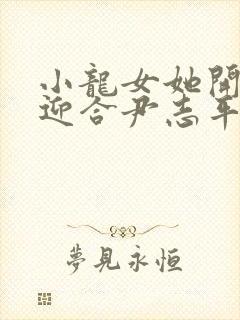 小龍女她開
迎合尹志平
夢見永恒